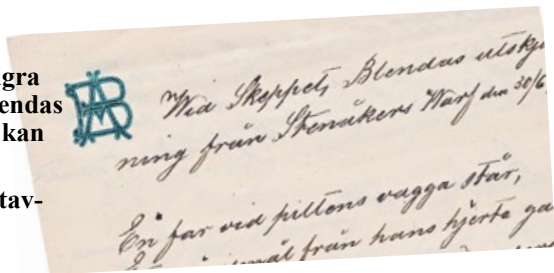 gra
endas
kan
tav-
AB
Wid Skeppets Blendas utskj
ning från Stenåkers Warf den 30/6
En far vid piltens vagga står,
från hans hjerte ga